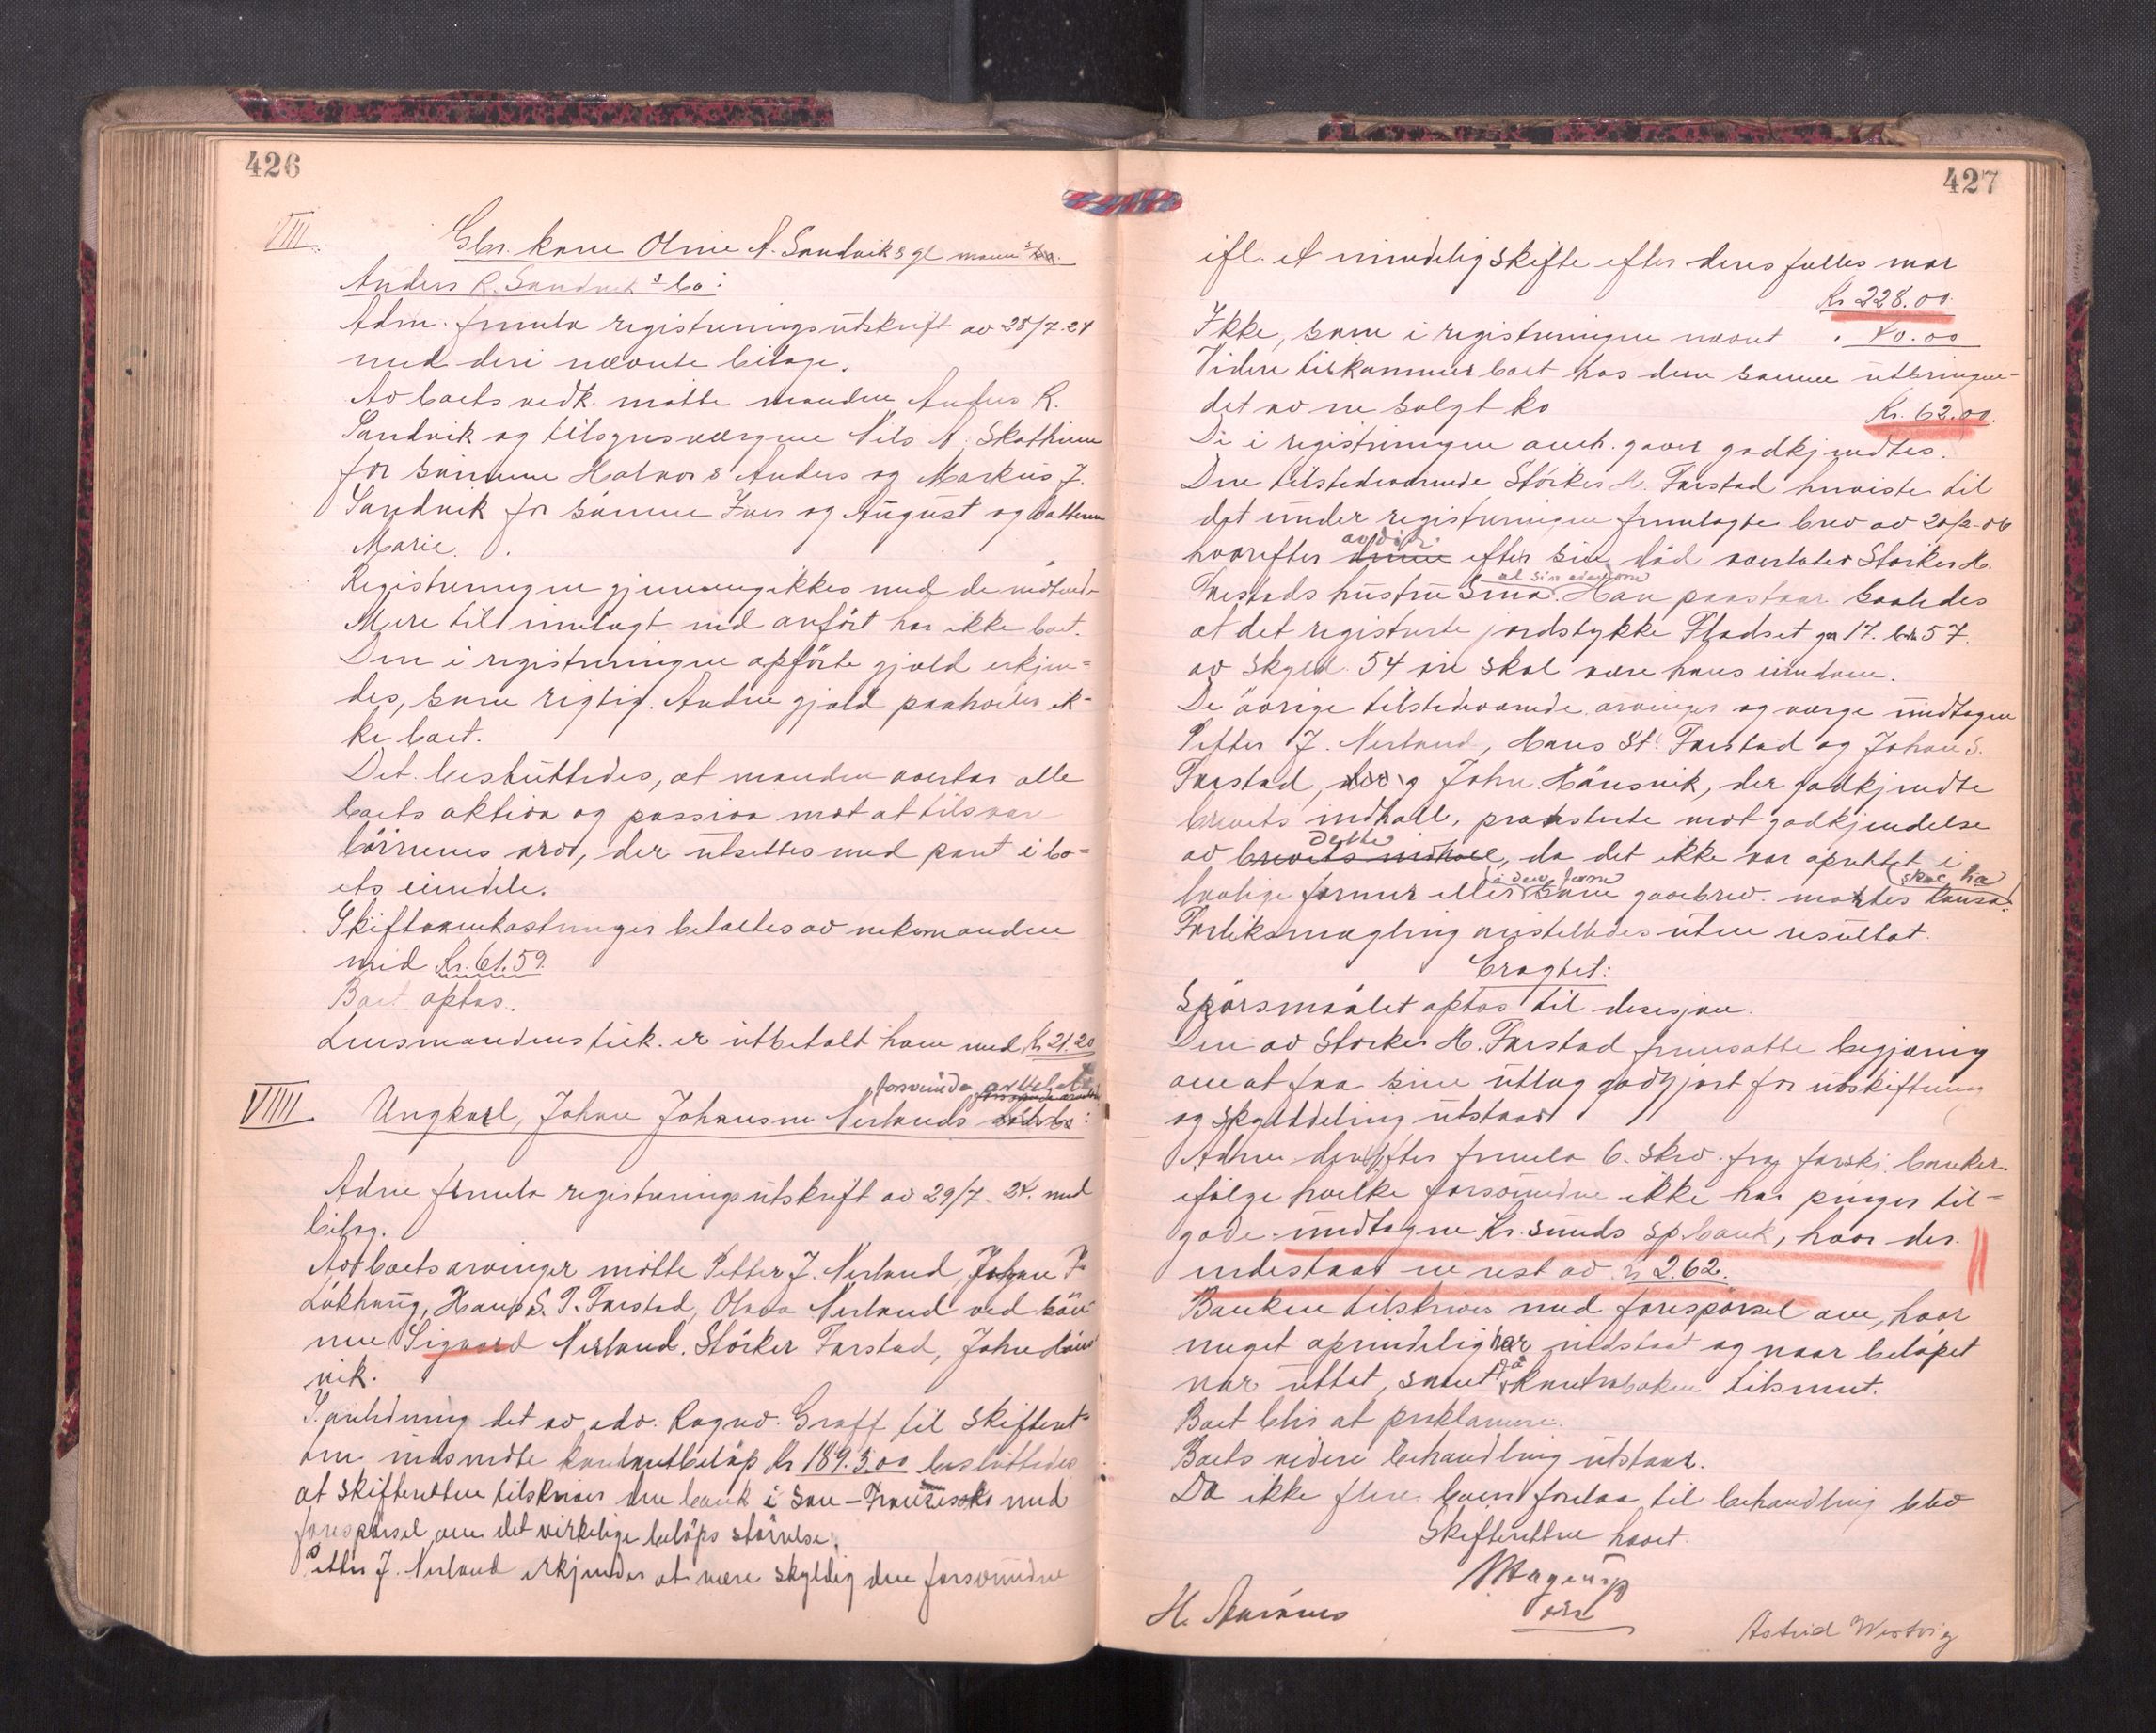 426
VIII. Gbr. kone Oline A. Sandviks gl mann's bo.
Anders R. Sandvik's bo:
Adm. fremla registreringsutskrift av 28/7.24
med deri nævnte bilage.
Av boets vedk. møtte manden Anders R.
Sandvik og tilsynsværgene Nils N. Skothinn
for sønnene Halvor & Anders og Markus J.
Sandvik for sønnene Iver og August og datteren
Marie.
Registreringen gjennemgikkes med de møtende
Mere til indtægt end anført har ikke boet.
Den i registreringen opførte gjæld erkjen=
des, som rigtig. Anden gjæld paahviler ik=
ke boet.
Det besluttedes, at manden overtar alle
boets aktiva og passiva mot at tilsvare
børnenes arv, der utsettes med pant i bo=
ets eiendele.
Skifteomkostninger betaltes av enkemanden
med Kr. 61.59.
Boet optas.
Lensmandens tilk. er utbetalt ham med Kr 21.20
forsvundne
VIIII Ungkarl, Johan Johansen Nerlands bo:
Adm fremla registreringsutskrift av 29/7. 24. med
bilag.
Av boets arvinger møtte Petter J. Nerland, Johan J.
Løkhaug, Hans S. T. Farstad, Olava Nerland ved søn
nen Sigvard Nerland. Størker Farstad, John Haus
vik.
I. anledning det av adv. Ragnv. Graff til skifteret=
ten indsendte kontantbeløp Kr 189.5.00 besluttedes
at skifteretten tilskriver den bank i San-Francisco med
forespørsel om det virkelige beløps størrelse.
Petter J. Nerland erkjender at være skyldig den forsvundne
427
ifl. et mindelig skifte efter deres fælles mor
Kr 228.00.
Ikke, som i registreringen nævnt . 40.00
Videre tilkommer boet hos dem samme utbringen=
det av en solgt ko Kr. 62.00.
De i registreringen omh. gaver godkjendtes.
Den tilstedeværende Størker H. Farstad henviste til
det under registreringen fremlagte brev av 20/2-06
avdøde
hvorefter denne efter sin død overlater Størker H.
al sin eiendom
Farstads hustru Sina. Han paastaar saaledes
at det registrerte jordstykke Fladset gn 17. bn 57.
av skyld 54 øre skal være hans eiendom.
De øvrige tilstedeværende arvinger og værge undtagen
Petter J. Nerland, Hans St. Farstad og Johan S.
Farstad, og John Hausvik, der godkjendte
brevets indhold, protesterte mot godkjendelse
dette
av brevets indhold, da det ikke var oprettet i
i den form skal ha
lovlige former eller som gavebrev. mortis kausa.
Forliksmægling anstilledes uten resultat.
Eragtet:
Spørsmaalet optas til desisjon.
Den av Størker H. Farstad fremsatte begjæring
om at faa sine utlæg godtgjort for utskiftning
og skylddeling utstaar
Adm derefter fremla 6. skrv. fra forskj. banker.
ifølge hvilke forsvundne ikke har penger til=
gode undtagen Kr.sunds sp.bank, hvor der
indestaar en rest av kr 2.62.
Banken tilskrives med forespørsel om, hvor
meget oprindelig har indestaat og naar beløpet
var uttat, samt kontraboken tilsent.
Boet blir at proklamere.
Boets videre behandling utstaar.
Da ikke flere boer forelaa til behandling blev
skifteretten hævet.
Astrid Westvig